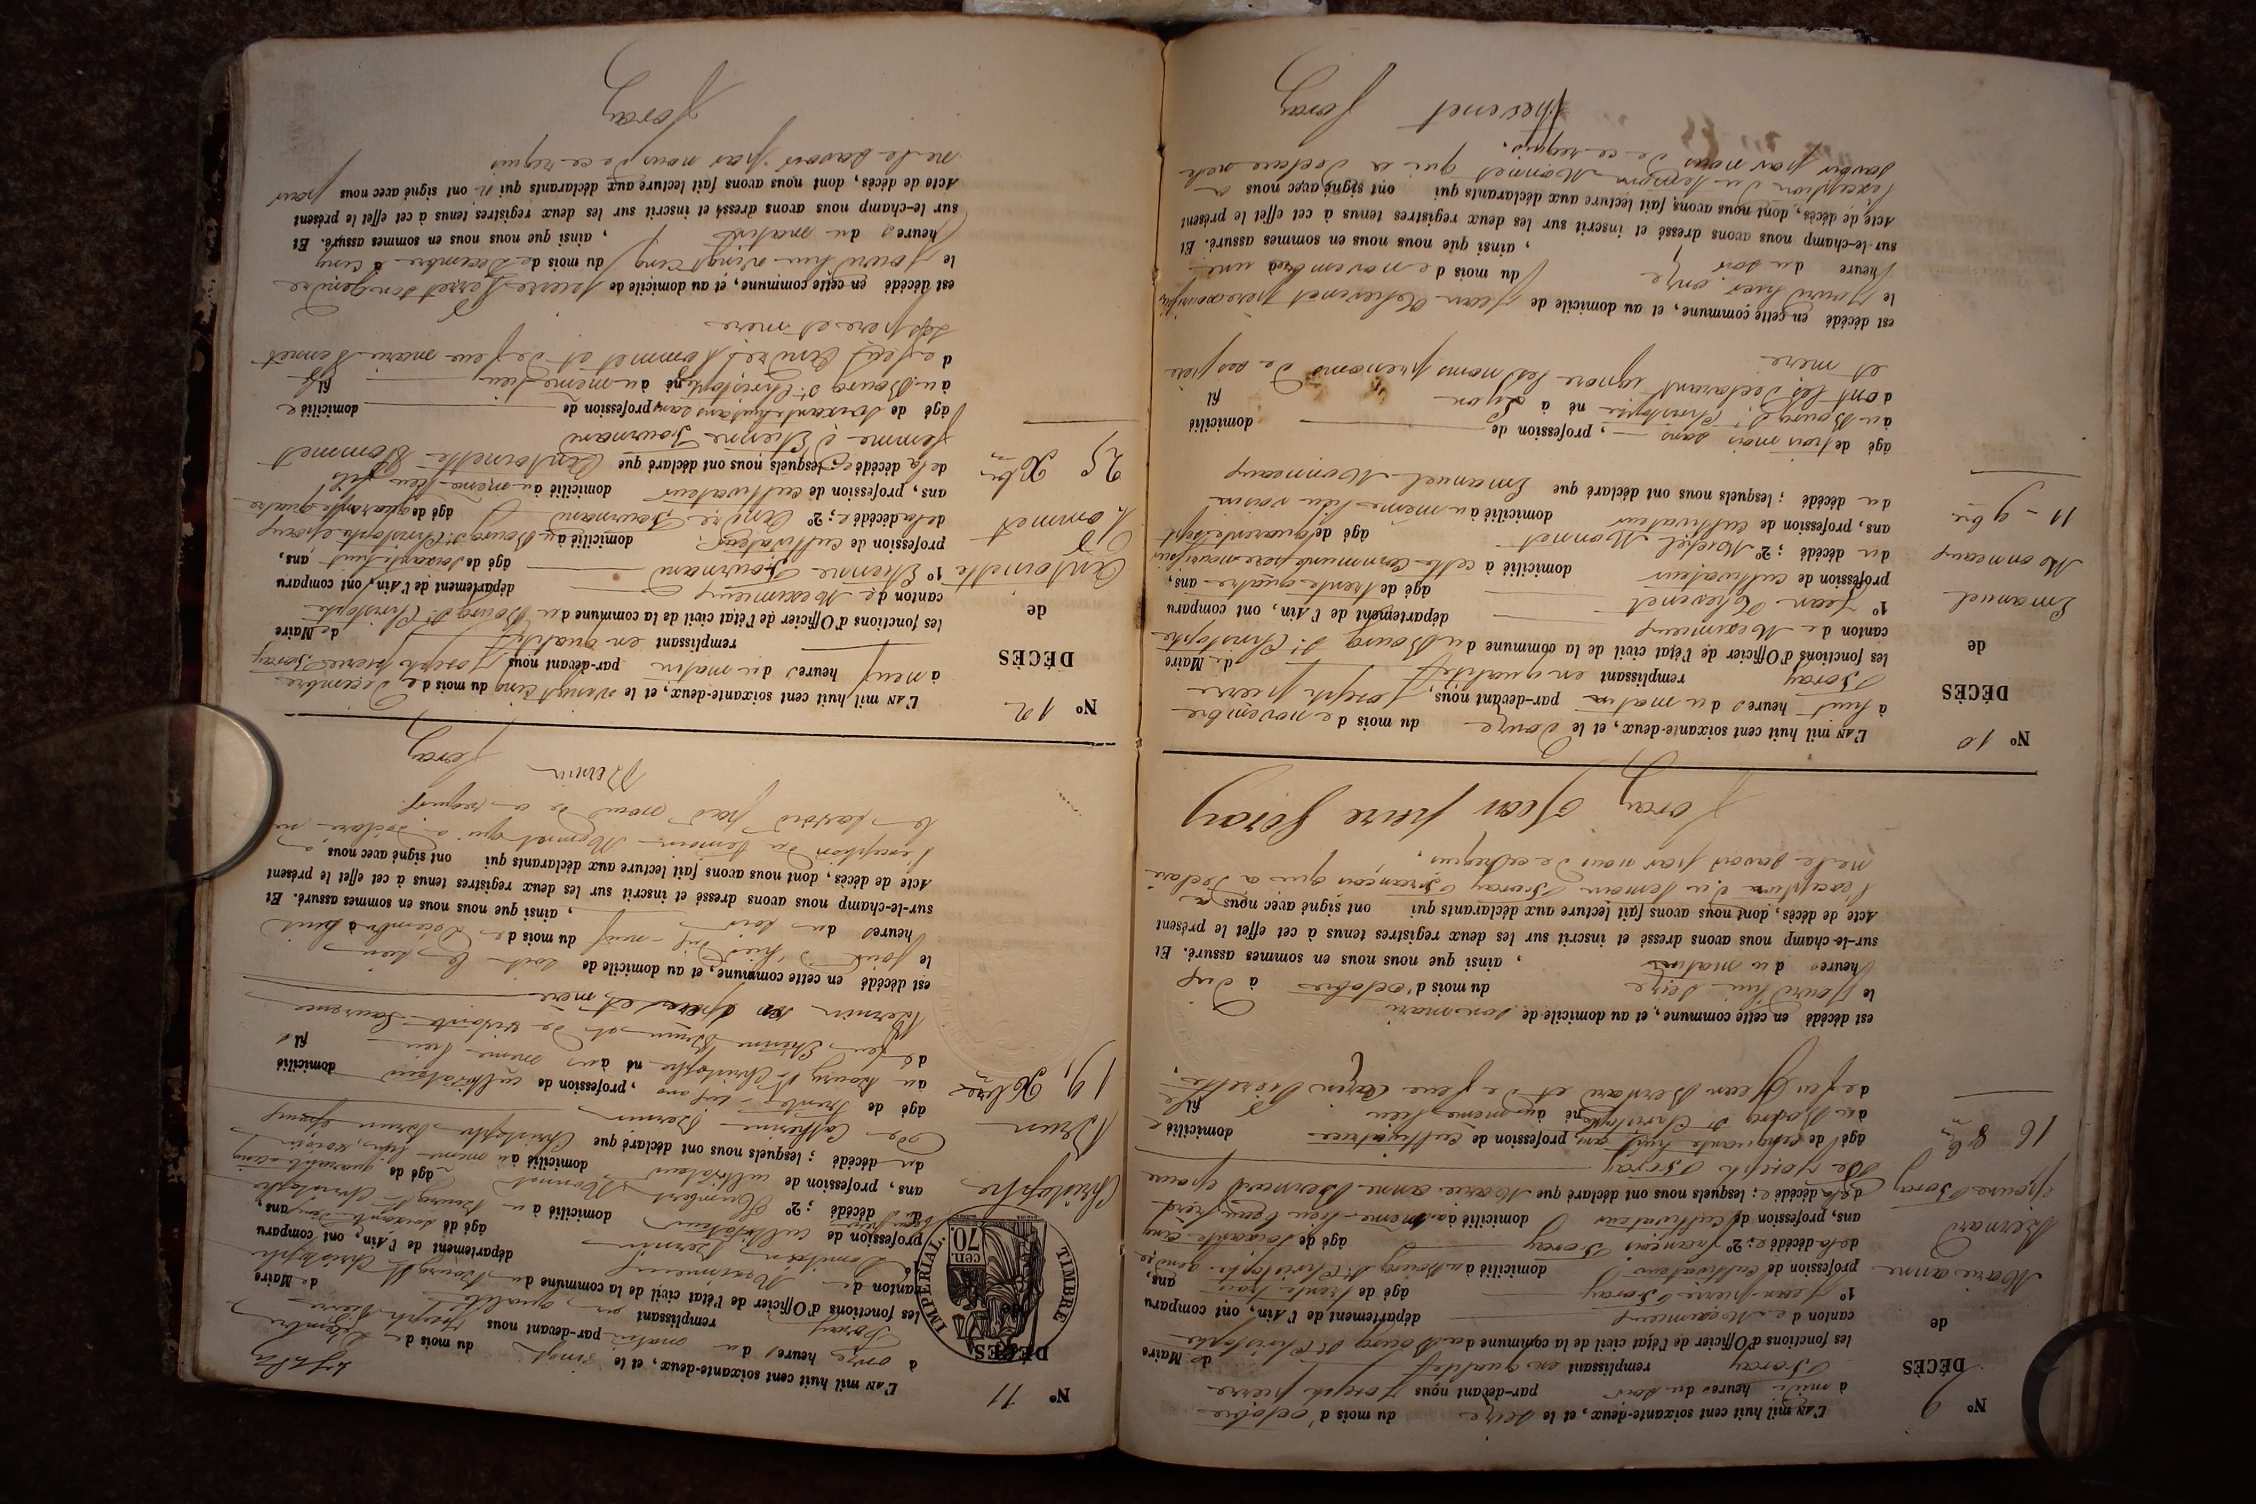 N° 9
DÉCÈS
de
Marie anne
Bernard
épouse Boray
16 8bre
L'AN mil huit cent soixante-deux, et le seize du mois d'octobre
à midi heures du soir par-devant nous Joseph pierre
Boray remplissant en qualité de Maire
les fonctions d'Officier de l'état civil de la commune du Bourg St Christophe
canton de Meximieux département de l'Ain, ont comparu
1° Jean pierre Boray âgé de trente trois ans,
profession de cultivateur domicilié à au Bourg St Christophe gendre
de la décédée; 2° françois Boray âgé de soixante cinq
ans, profession de cultivateur domicilié à au même lieu beau frère
de la décédée; lesquels nous ont déclaré que Marie anne Bernard épouse
de Joseph Boray
âgée de cinquante huit ans profession de cultivatrice domiciliée
à au Bourg St Christophe née à au même lieu fille
de feu Jean Bernard et de feue
est décédée en cette commune, et au domicile de son mari
le jourd'hui seize du mois d'octobre à dix
heures du matin, ainsi que nous nous en sommes assuré. Et
sur-le-champ nous avons dressé et inscrit sur les deux registres tenus à cet effet le présent
Acte de décès, dont nous avons fait lecture aux déclarants qui ont signé avec nous à
l'exception du témoin Boray françois qui a déclaré
ne le savoir par nous de ce requis.
Boray Jean pierre Boray
N° 10
DÉCÈS
de
Emanuel
Monmeaux
11 - 9bre
L'AN mil huit cent soixante-deux, et le douze du mois de novembre
à huit heures du matin par-devant nous, Joseph pierre
Boray remplissant en qualité de Maire
les fonctions d'Officier de l'état civil de la commune du Bourg St Christophe
canton de Meximieux département de l'Ain, ont comparu
1° Jean Thevenet âgé de trente quatre ans,
profession de cultivateur domicilié à cette commune père nourricier
du décédé; 2° Michel Monnet âgé de quarante sept
ans, profession de cultivateur domicilié à au même lieu voisin
du décédé; lesquels nous ont déclaré que Emanuel Monmeaux
âgé de trois mois sans, profession de domicilié
à au Bourg St Christophe né à Lyon fil
dont les déclarant ignore les noms prénoms de ses père
et mère
est décédé en cette commune, et au domicile de Jean Thevenet père nourricier
le jourd'hier onze du mois de novembre à une
heure du soir, ainsi que nous nous en sommes assuré. Et
sur-le-champ nous avons dressé et inscrit sur les deux registres tenus à cet effet le présent
Acte de décès, dont nous avons fait lecture aux déclarants qui ont signé avec nous à
l'exception du témoin Monnet qui a déclaré ne le
savoir par nous de ce requis.
Thevenet Boray
N° 11
DÉCÈS
TIMBRE IMPERIAL
70 cen.
Christophe
Brun
19, Xbre
L'AN mil huit cent soixante-deux, et le vingt du mois de décembre
à onze heures du matin par-devant nous Joseph Pierre
Boray remplissant en qualité de Maire
les fonctions d'Officier de l'état civil de la commune du Bourg St Christophe
canton de Meximieux département de l'Ain, ont comparu
Bernin âgé de soixante ans,
profession de cultivateur domicilié à au Bourg St Christophe
du décédé; 2° Humbert Monnet âgé de quarante cinq
ans, profession de cultivateur domicilié à au même lieu, voisin
du décédé; lesquels nous ont déclaré que Christophe Brun époux
de Catherine Bernin
âgé de trente six ans, profession de cultivateur domicilié
au Bourg St Christophe né au même lieu fils
de feu Etienne Brun et de vivante Laurence
Bernin ses père et mère
est décédé en cette commune, et au domicile de
le jour d'hier dix-neuf du mois de Décembre à huit
heures du soir, ainsi que nous nous en sommes assuré. Et
sur-le-champ nous avons dressé et inscrit sur les deux registres tenus à cet effet le présent
Acte de décès, dont nous avons fait lecture aux déclarants qui ont signé avec nous à
l'exception du témoin Monnet qui a déclaré ne
le savoir par nous de ce requis.
Bernin Boray
N° 12
DÉCÈS
de
Antoinette
Pommet
25 Xbre
L'AN mil huit cent soixante-deux, et le vingt cinq du mois de Décembre
à neuf heures du matin par-devant nous Joseph pierre Boray
remplissant en qualité de Maire
les fonctions d'Officier de l'état civil de la commune du Bourg St Christophe
canton de Meximieux département de l'Ain, ont comparu
1° Etienne Gourmand âgé de soixante huit ans,
profession de cultivateur domicilié à au Bourg St Christophe époux
de la décédée; 2° André Gourmand âgé de quarante quatre
ans, profession de cultivateur domicilié à au même lieu fils
de la décédée; lesquels nous ont déclaré que Antoinette Pommet
femme à Etienne Gourmand
âgée de soixante huit ans sans profession de domiciliée
à au Bourg St Christophe née à au même lieu fille
de feu André Pommet et de feue marie Bennet
ses père et mère
est décédée en cette commune, et au domicile de pierre son gendre
le jourd'hui vingt cinq du mois de Décembre à cinq
heures du matin, ainsi que nous nous en sommes assuré. Et
sur-le-champ nous avons dressé et inscrit sur les deux registres tenus à cet effet le présent
Acte de décès, dont nous avons fait lecture aux déclarants qui n'ont signé avec nous pour
ne le savoir par nous de ce requis
Boray